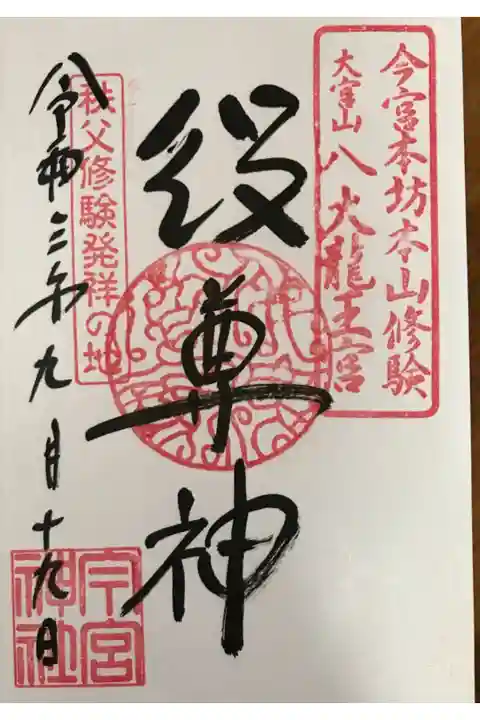 今宮本坊本山修験
大宮山八大龍王宮
役尊神
秩父修験発祥の地
令和三年九月十九日
今宮神社